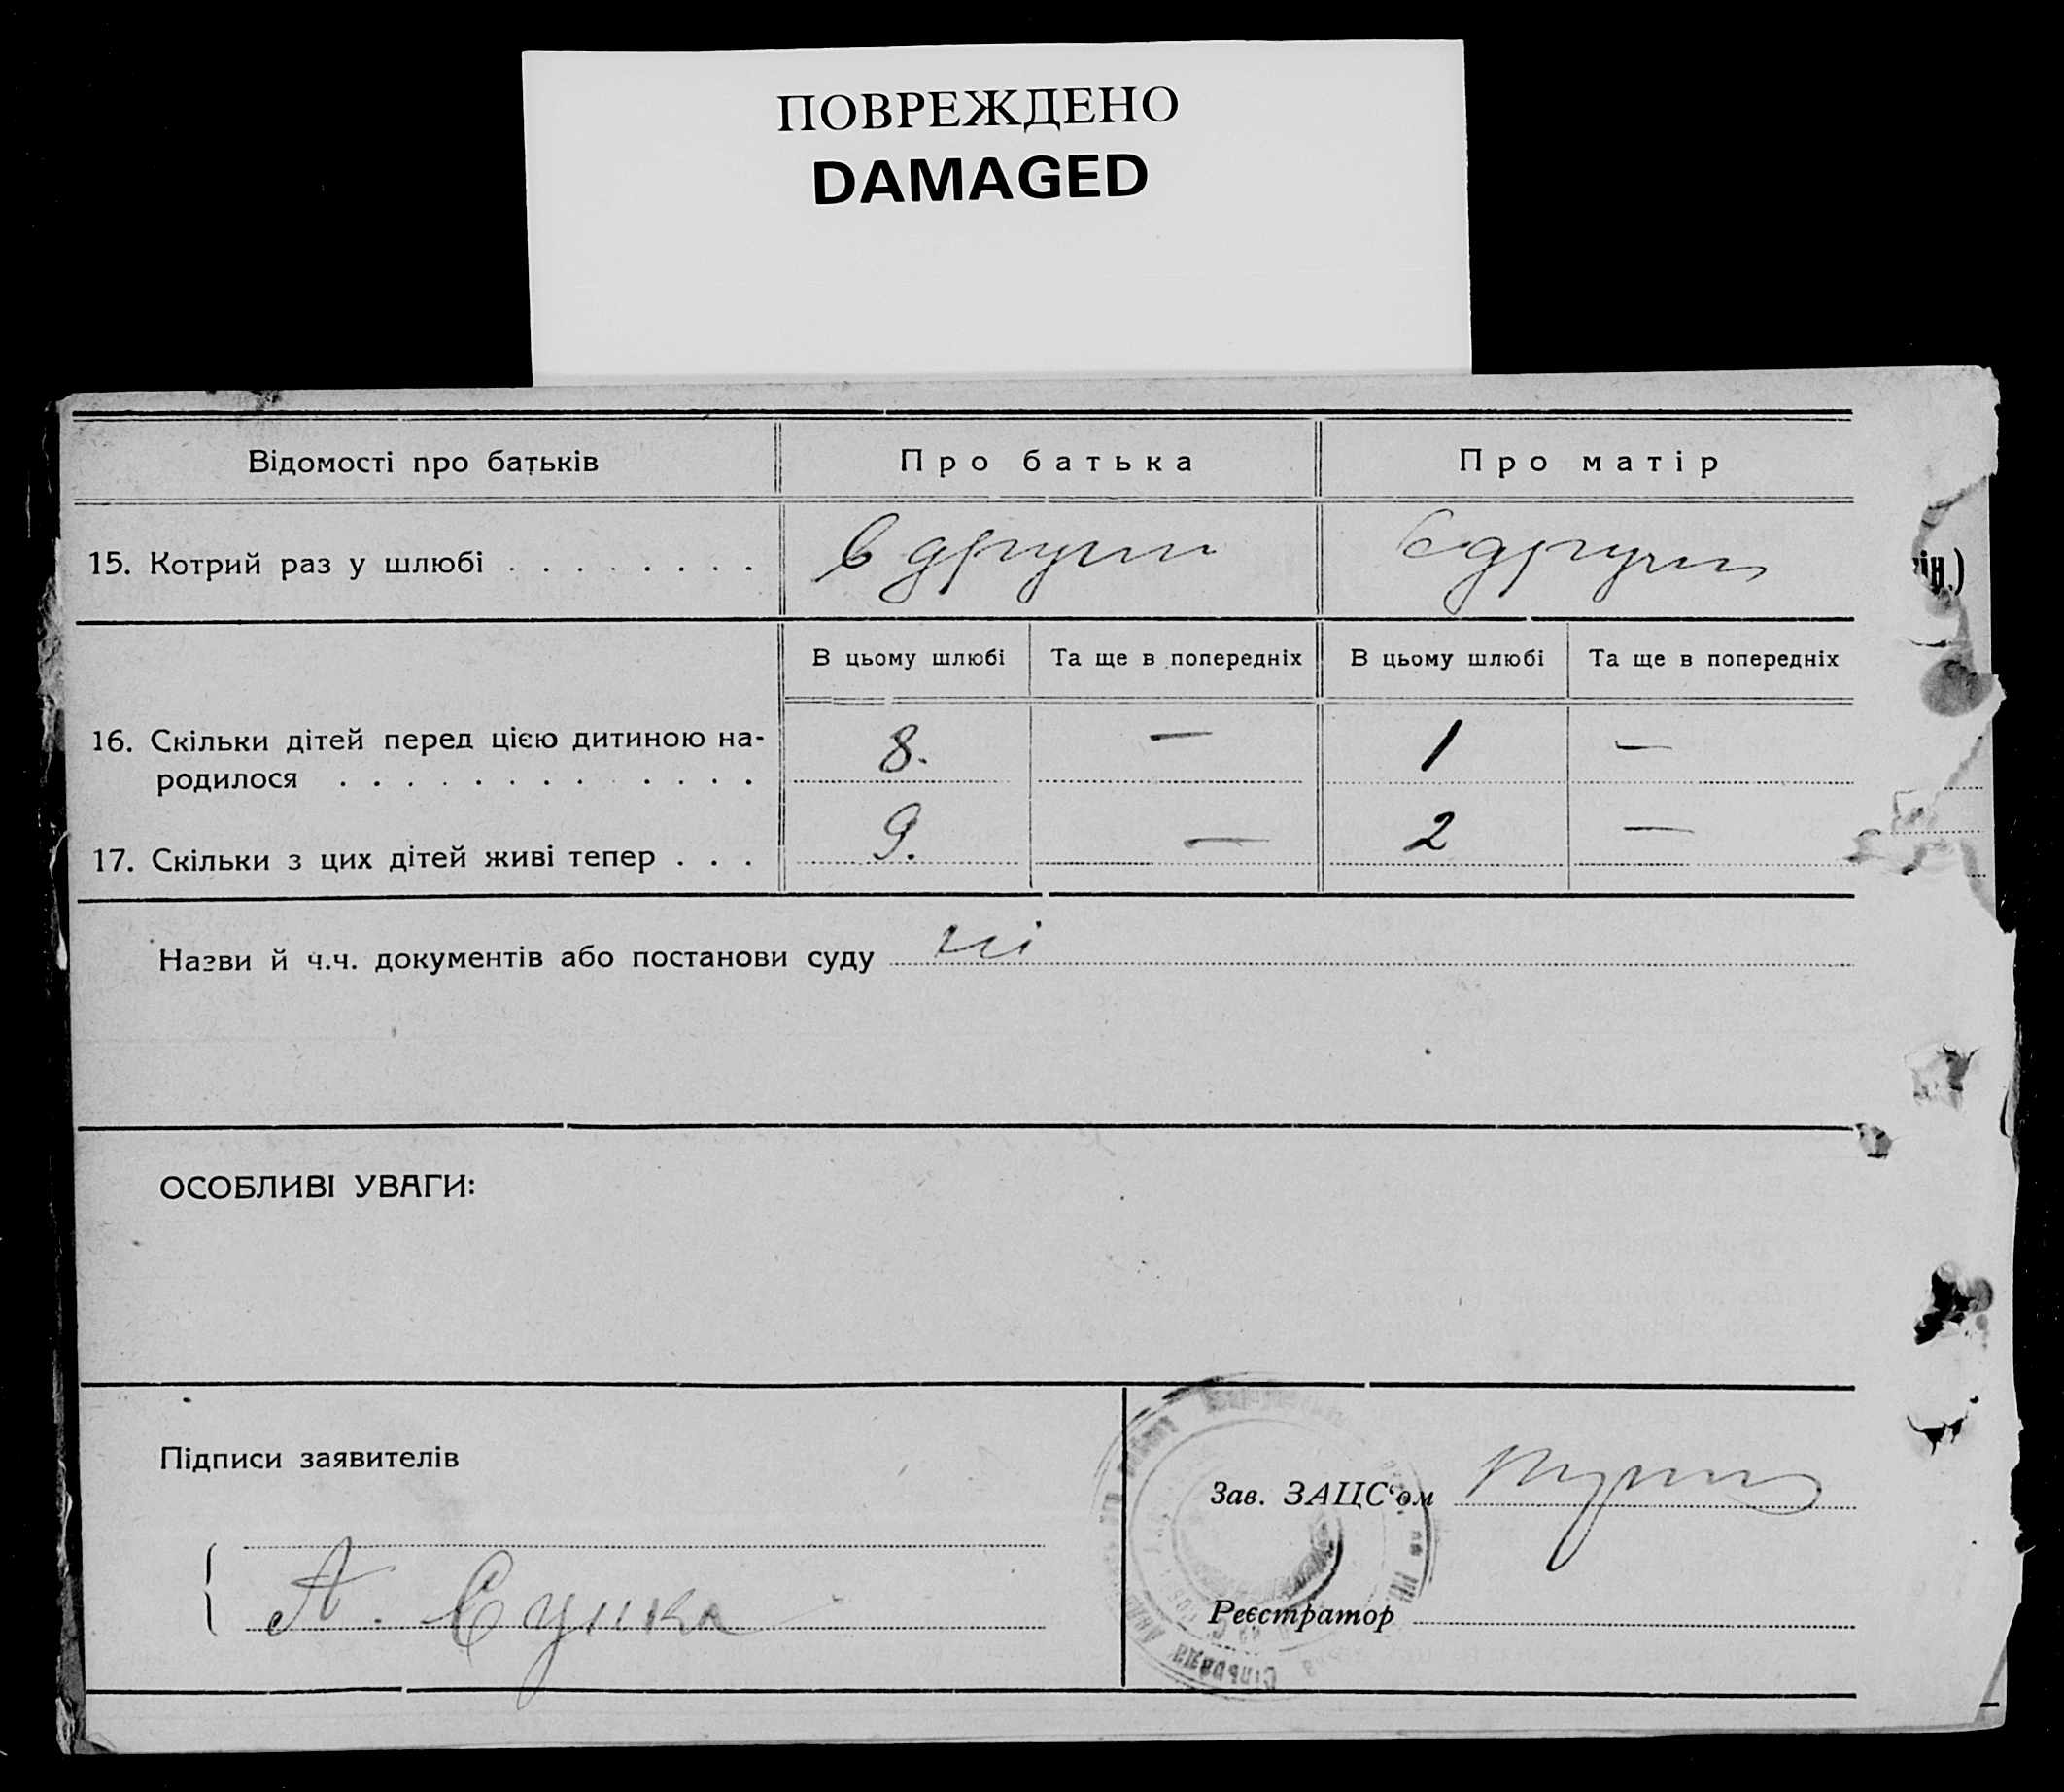 ПОВРЕЖДЕНО
DAMAGED
Відомості про батьків
Про батька
Про матір
15. Котрий раз у шлюбі . . . . . . . .
в другий
в другий
ін.)
В цьому шлюбі
Та ще в попередніх
В цьому шлюбі
Та ще в попередніх
16. Скільки дітей перед цією дитиною на-
родилося . . . . . . . . . . . . .
8.
—
1
—
17. Скільки з цих дітей живі тепер . . .
9.
—
2
—
Назви й ч.ч. документів або постанови суду ні
ОСОБЛИВІ УВАГИ:
Підписи заявителів
Зав. ЗАЦС‘ом
А.
Реєстратор
Сільрада